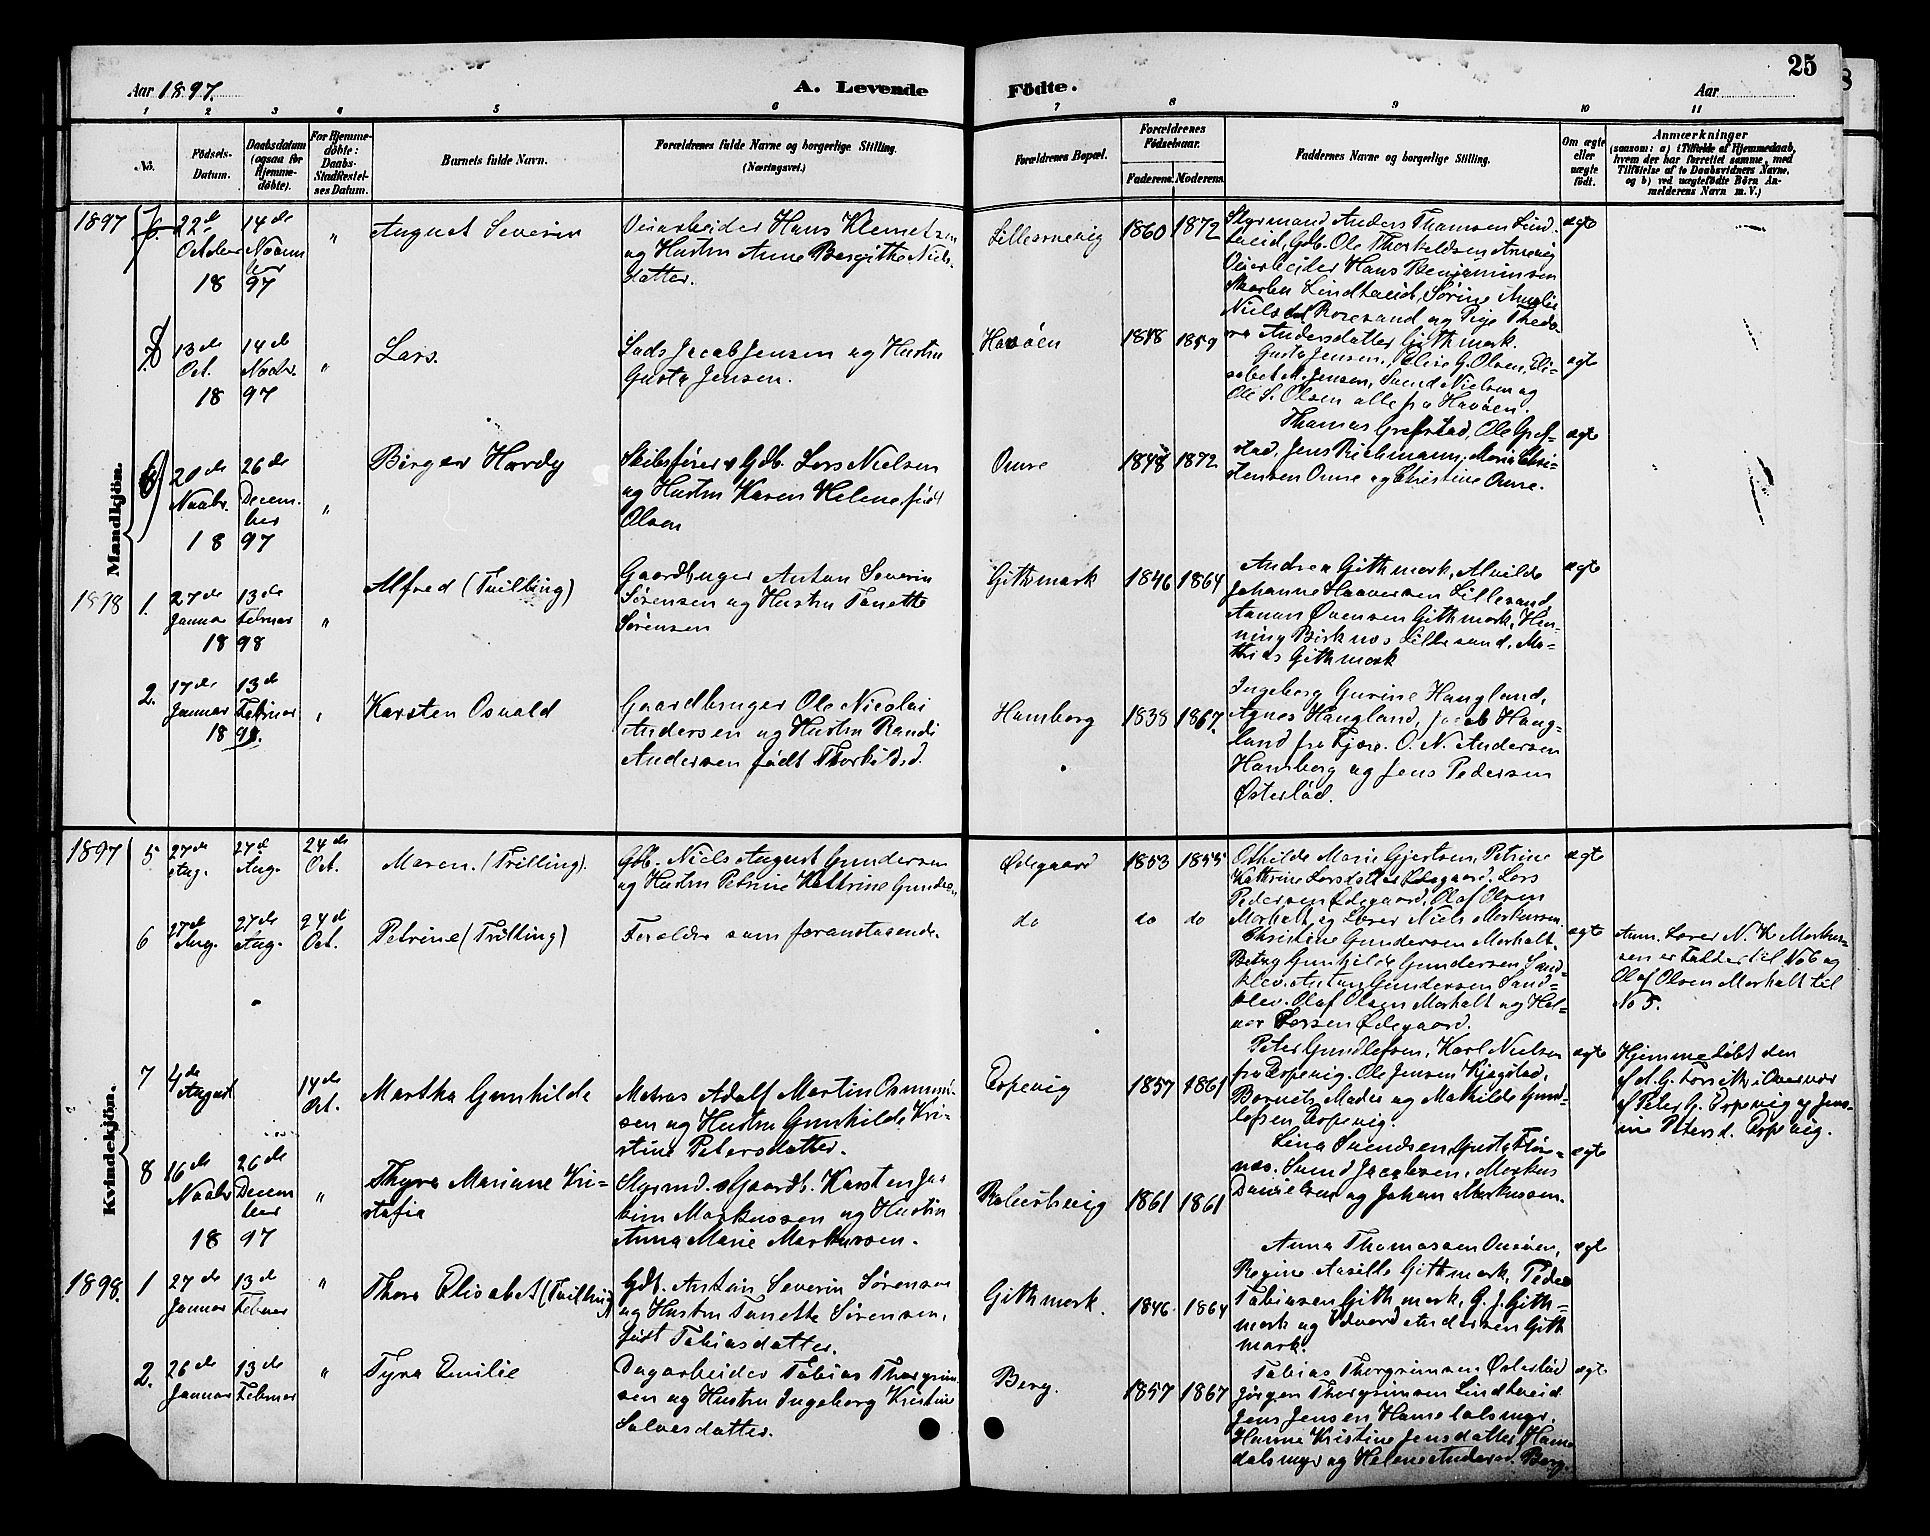 25
Aar 1897.
A. Levende
Födte.
Aar
1 2 3 4 5 6 7 8 9 10 11
No.
Födsels-
Datum.
Daabsdatum
(ogsaa for
Hjemme-
døbte).
For Hjemme-
döbte:
Daabs-
Stadfæstel-
ses Datum.
Barnets fulde Navn.
Forældrenes fulde Navne og borgerlige Stilling.
(Næringsvei.)
Forældrenes Bopæl.
Forældrenes
Födselsaar.
Faderens. Moderens.
Faddernes Navne og borgerlige Stilling.
Om ægte
eller
uægte
født.
Anmærkninger
(saasom: a) i Tilfælde af Hjemmedaab,
hvem der har forrettet samme, med
Tilføielse af to Daabsvidners Navne,
og b) ved uægtefödte Börn An-
melderens Navn m. V.)
Mandkjön.
1897
22de
October
14de
Novem
ber
18 97
"
August Severin
Veiarbeider Hans Klemetsen
og Hustru Anne Bergithe Niels-
datter.
1860 1872
Styrmand Anders Thomsen Lind-
Gdb. Ole Thorkeldsen
Veiarbeider Hans Benjaminsen
Sørine Amalie
Nielsd. Rosesand og Pige Theodo-
ra Andersdatter Githmark.
ægte
13de
Oct.
14de
Novbr.
18 97
"
Lars.
Lods Jacob Jensen og Hustru
Gusta Jensen.
Havöen
1848 1859
Gusta Jensen, Elise G. Olsen, Eli-
sabet M. Jensen, Svend Nielsen og
Ole S. Olsen alle fra Havöen.
ægte
20de
Novbr.
26de
Decem-
ber
18 97
"
Birger Hardy
Skibsfører & Gdb. Lars Nielsen
og Hustru Karen Helene født
Olsen
Omre
1848 1872
Thomas Grefstad, Ole Gref-
stad, Jens Richmann, Maria Chri-
stensen Omre og Christine Omre.
ægte
1898
1.
27de
Januar
13de
Februar
18 98
"
Alfred (Tvilling)
Gaardbruger Anton Severin
Sørensen og Hustru Tanette
Sørensen
Githmark
1846 1864
Andrea Githmark, Alvilde
Johanne Haaversen Lillesand
Aanon Ovensen Githmark, Hen-
ning Birknes Lillesand, Ma-
thias Githmark
ægte
2.
17de
Januar
13de
Februar
18 98.
"
Karsten Osvald
Gaardbruger Ole Nicolai
Andersen og Hustru Randi
Andersen født Thorkildsd.
Humborg
1838 1867.
Ingeborg Gurine Haugland,
Agnes Haugland, Jacob Haug-
land fra Fjære. O. N. Andersen
Humborg og Jens Pedersen
Østerlöd.
Kvindekjön.
1897
5
27de
Aug.
27de
Aug.
24de
Oct.
Maren. (Trilling).
Gdb. Niels August Gundersen
og Hustru Petrine Kathrine Gunders.
Ødegaard
1853 1855
Othilde Marie Gjertsen, Petrine
Kathrine Larsdatter Ødegaard. Lars
Pedersen Ødegaard, Olaf Olsen
Morholt, og Lærer Niels Markussen
ægte
6
27de
Aug.
27de
Aug.
24de
Oct.
Petrine (Trilling)
Forældre som foranstaaende.
do do do
Christine Gundersen Morholt,
Betzy Gunhilde Gundersen Sand-
klev. Anton Gundersen Sand-
klev. Olaf Olsen Morholt og Hal-
vor Larsen Ødegaard.
ægte
Anm. Lærer N. K. Markus-
sen er Fadder til No 6 og
Olaf Olsen Morholt til
No 5.
7
4de
August
14de
Oct.
Martha Gunhilda
Matros Adolf Martin Osmund-
sen og Hustru Gunhilde Kri-
stine Petersdatter.
Torpevig
1857 1861
Peter Gundlefsen, Karl Nielsen
fra Torpevig. Ole Jensen Kjegstad,
Barnets Moder og Mathilde Gund-
lefsen Torpevig.
ægte
Hjemmedøbt den
af A. G. Forsith i Overvær
af Peter G. Torpevig og Jen-
ine Petersd. Torpevig.
8
16de
Novbr
26de
Decem
ber
18 97
"
Thyra Mariane Kri-
stofia
Styrmd. & Gaardb. Karsten Joa-
kim Markussen og Hustru
Anna Marie Markussen.
1861 1861
Lina Svendsen, Gusta Thor-
nes. Svend Jacobsen, Markus
Danielsen og Johan Markussen.
ægte
1898.
1
27de
Januar
13de
Februar
"
Thora Elisabet (Tvilling)
Gdb. Anton Severin Sørensen
og Hustru Tanette Sørensen,
født Tobiasdatter.
Githmark.
1846 1864
Anna Thomassen
Regine Githmark, Peder
Tobiassen Githmark, G. J. Gith-
mark og Edvard Andersen Gith
mark.
ægte
2.
26de
Januar
13de
Februar
"
Tyra Emilie
Dagarbeider Tobias Thorgrim-
sen og Hustru Ingeborg Kristine
Salvesdatter.
Berg.
1857 1867
Tobias Thorgrimsen Østerlöd
Jörgen Thorgrimsen Lindheid
Jens Jensen Humedalsmyr.
Hanne Kristine Jensdatter Hume
dalsmyr og Helene Andersd. Berg.
ægte